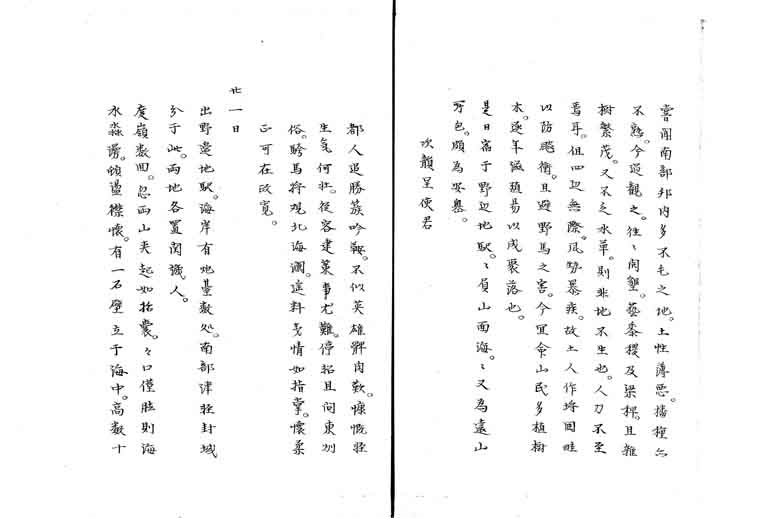 嘗聞南部邦内多不毛之地。土性薄悪。播種亦
不熟。今巡觀之。往々開墾。藝黍稷及粱稗。且雜
樹繁茂。又不乏水草。則非地不生也。人力不至
焉耳。但四辺無際。風勢暴疾。故土人作埒囲畦
以防飈衝。且避野馬之害。今宜令山民多植樹
木。逐年滋殖易以成聚落也。
是日宿于野辺地駅。々負山面海。々又為遠山
所包。頗為安墨。
次韻呈使君
都人追勝簇吟鞍。不似英雄髀肉歎。慷慨
生氣何壮。從容建策事尤難。停軺且问東州
俗。騎馬將观北海瀾。遠料夷情如指掌。懷柔
正可在政寛。
廿一日
出野邊地駅。海岸有炮臺数处。南部津輕封域
分于此。両地各置関譏人。
度嶺数回。忽両山夾起如括囊。々口僅豁則海
水淼漫。傾盪襟懷。有一石壁立于海中。高数十